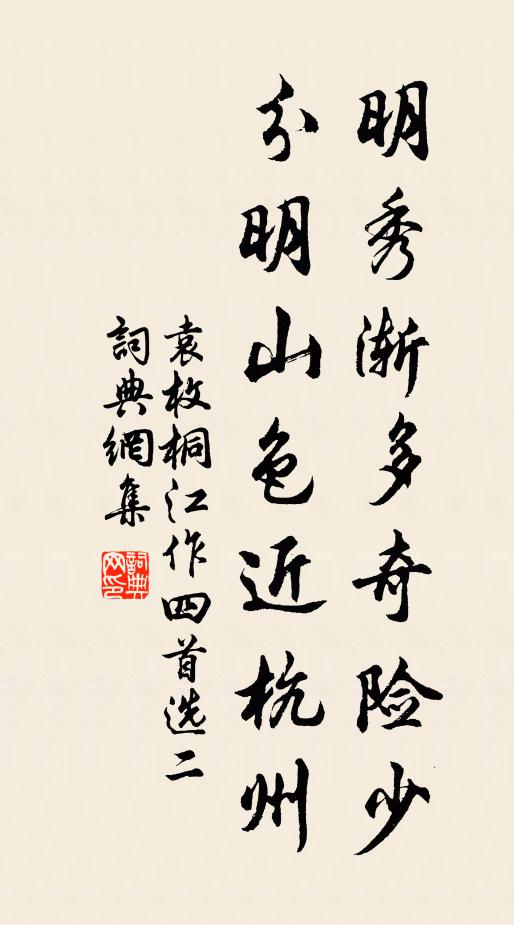 明秀渐多奇险少
分明山色近杭州
袁枚桐江作四首选二
詞典網集
詞典
网印